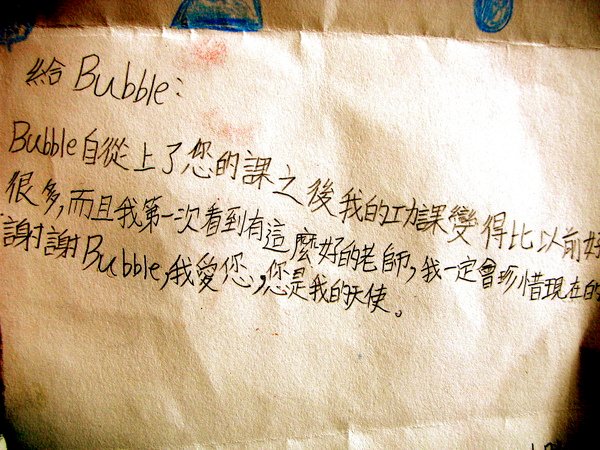 給 Bubble:
Bubble自從上了您的課之後我的功課變得比以前好
很多,而且我第一次看到有這麼好的老師,我一定會珍惜現在的
謝謝Bubble,我愛您,您是我的天使。